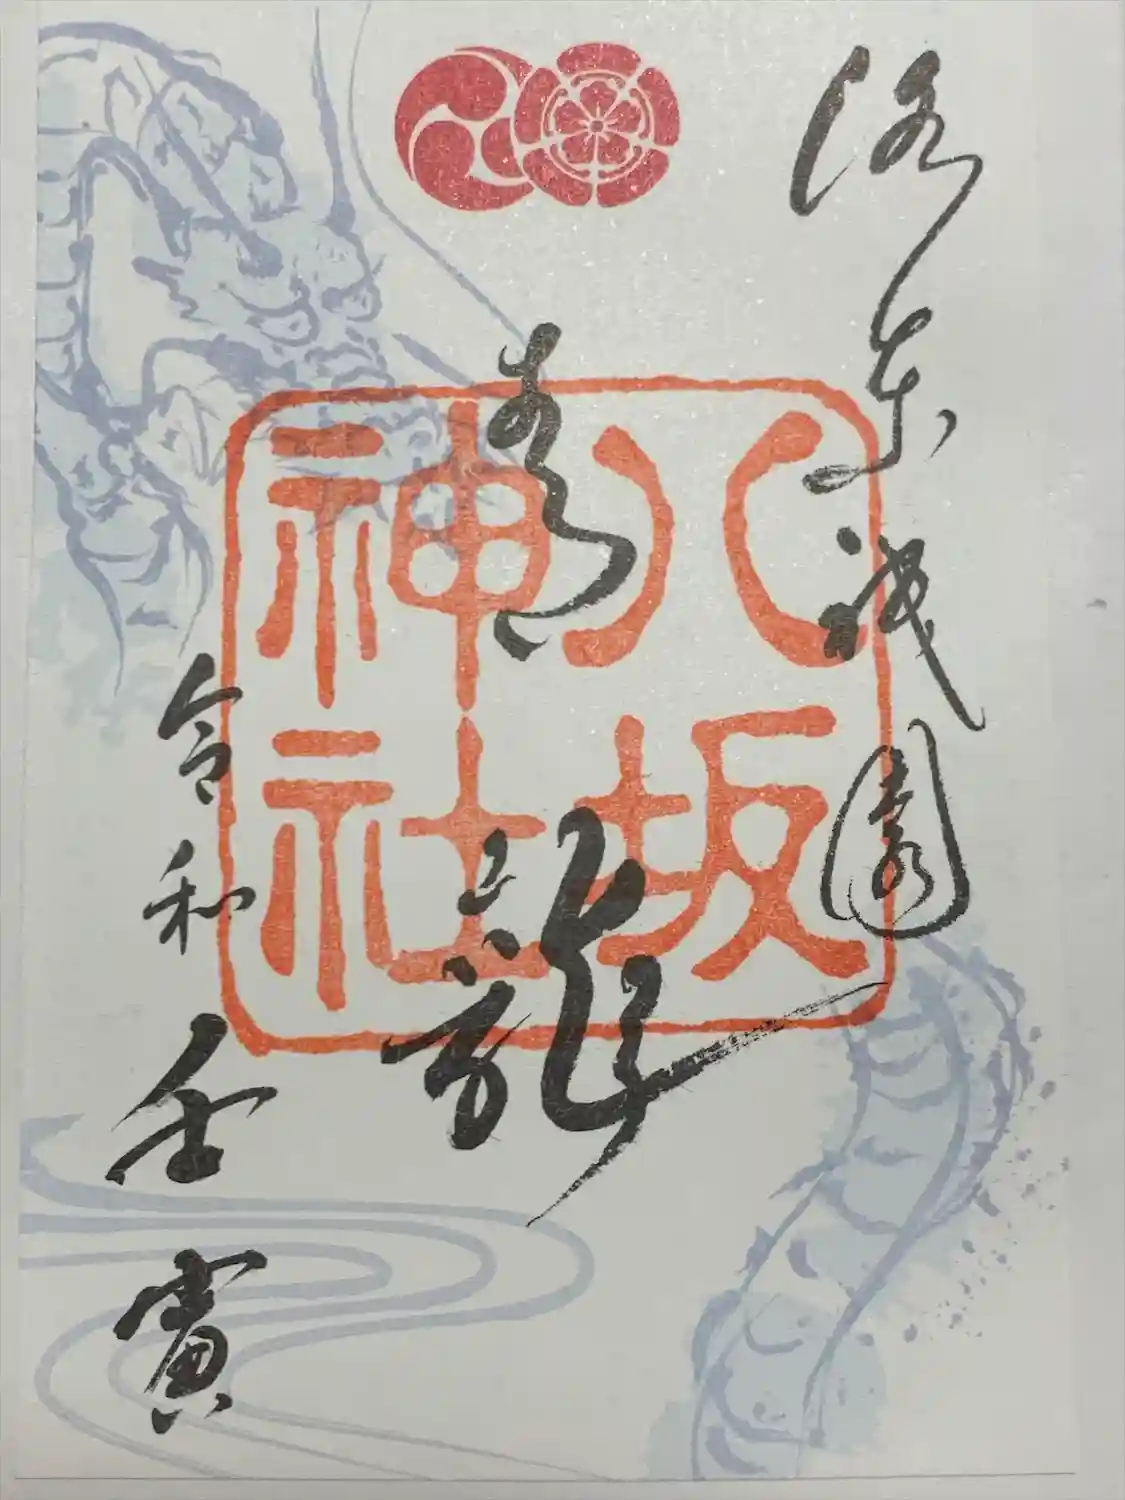 洛東祇園
八坂
神社
青龍
令和壬寅